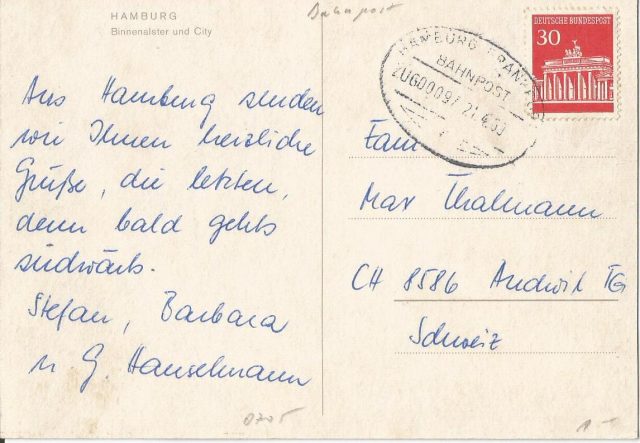 HAMBURG
Binnenalster und City
Bahnpost
Aus Hamburg senden
wir Ihnen herzliche
Grüße, die letzten,
denn bald gehts
südwärts.
Stefan, Barbara
u G. Hanselmann
DEUTSCHE BUNDESPOST
30
HAMBURG
BAHNPOST
ZUG00097
Fam
Max Thalmann
CH 8586 Andwil TG
Schweiz